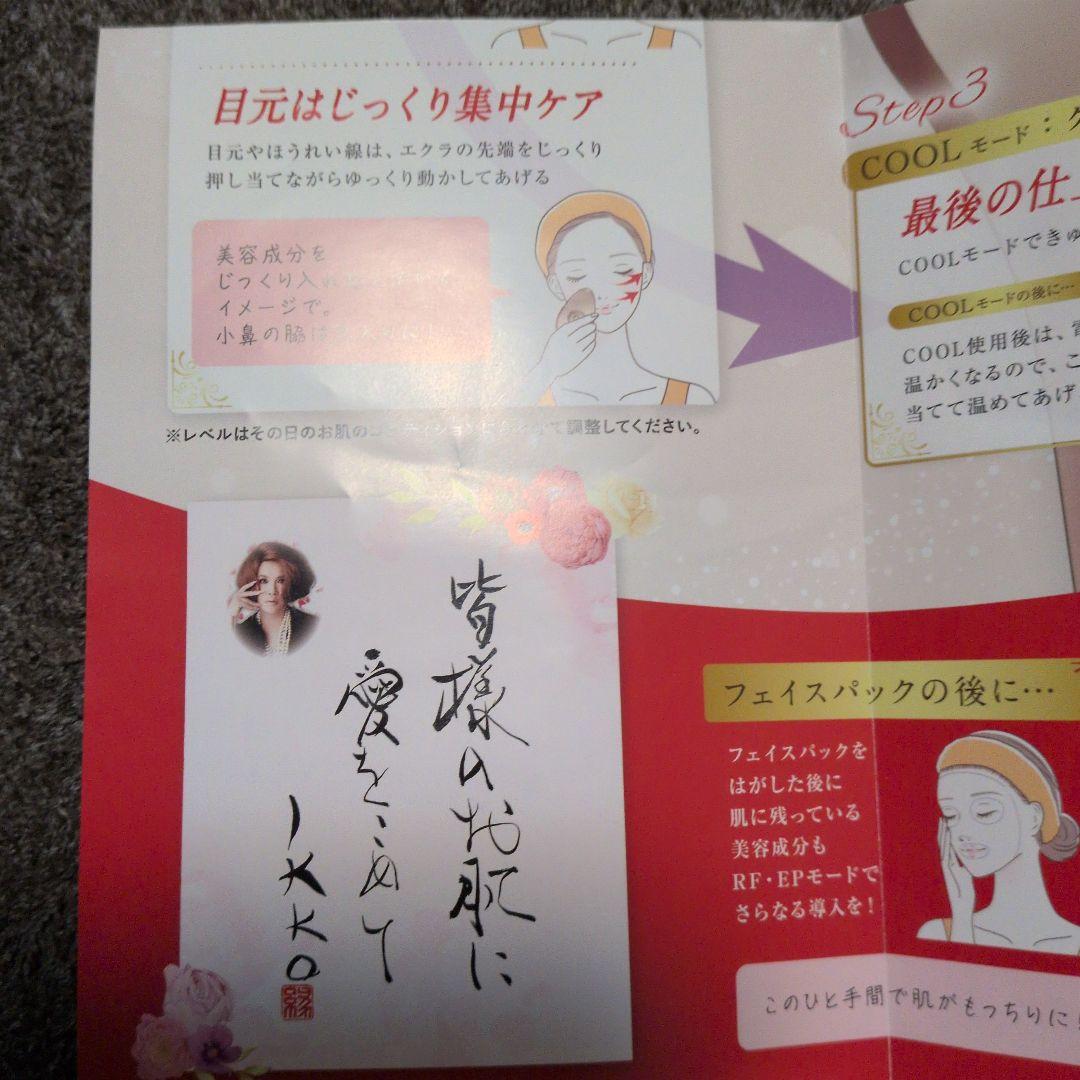 目元はじっくり集中ケア
目元やほうれい線は、エクラの先端をじっくり
押し当てながらゆっくり動かしてあげる
美容成分を
じっくり入れ
イメージで。
小鼻の脇は
※レベルはその日のお肌の調整してください。
皆様のお肌に
愛をこめて
IKKO
Step3
COOLモード：ク
最後の仕上
COOLモードできゅ
COOLモードの後に…
COOL使用後は、
温かくなるので、こ
当てて温めてあげ
フェイスパックの後に…
フェイスパックを
はがした後に
肌に残っている
美容成分も
RF・EPモードで
さらなる導入を！
このひと手間で肌がもっちりに！